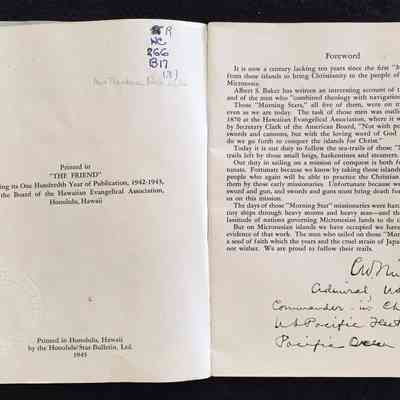 R
NC
266
B17
(3)
Printed in
"THE FRIEND"
ing its One Hundredth Year of Publication, 1942-1943,
the Board of the Hawaiian Evangelical Association,
Honolulu, Hawaii
Printed in Honolulu, Hawaii
by the Honolulu Star-Bulletin, Ltd.
1945
Foreword
It is now a century lacking ten years since the first "M
from these islands to bring Christianity to the people of
Micronesia.
Albert S. Baker has written an interesting account of th
and of the men who "combined theology with navigation
Those "Morning Stars," all five of them, were on m
even as we are today. The task of those men was outli
1870 at the Hawaiian Evangelical Association, where it w
by Secretary Clark of the American Board, "Not with p
swords and cannons, but with the loving word of God
do we go forth to conquer the islands for Christ."
Today it is our duty to follow the sea-trails of those "T
trails left by those small brigs, barkentines and steamers.
Our duty in sailing on a mission of conquest is both for
tunate. Fortunate because we know by taking those islands
people who again will be able to practice the Christian
them by those early missionaries. Unfortunate because we
sword and gun, and swords and guns must bring death
us on this mission.
The days of those "Morning Star" missionaries were har
tiny ships through heavy storms and heavy seas—and the
lassitude of nations governing Micronesian lands to the
But on Micronesian islands we have occupied we have
evidence of their work. The men who sailed on those "Mor
a seed of faith which the years and the cruel strain of Japa
not wither. We are proud to follow their trails.
CWNim
Admiral, US
Commander in Ch
US Pacific Fleet
Pacific Ocean